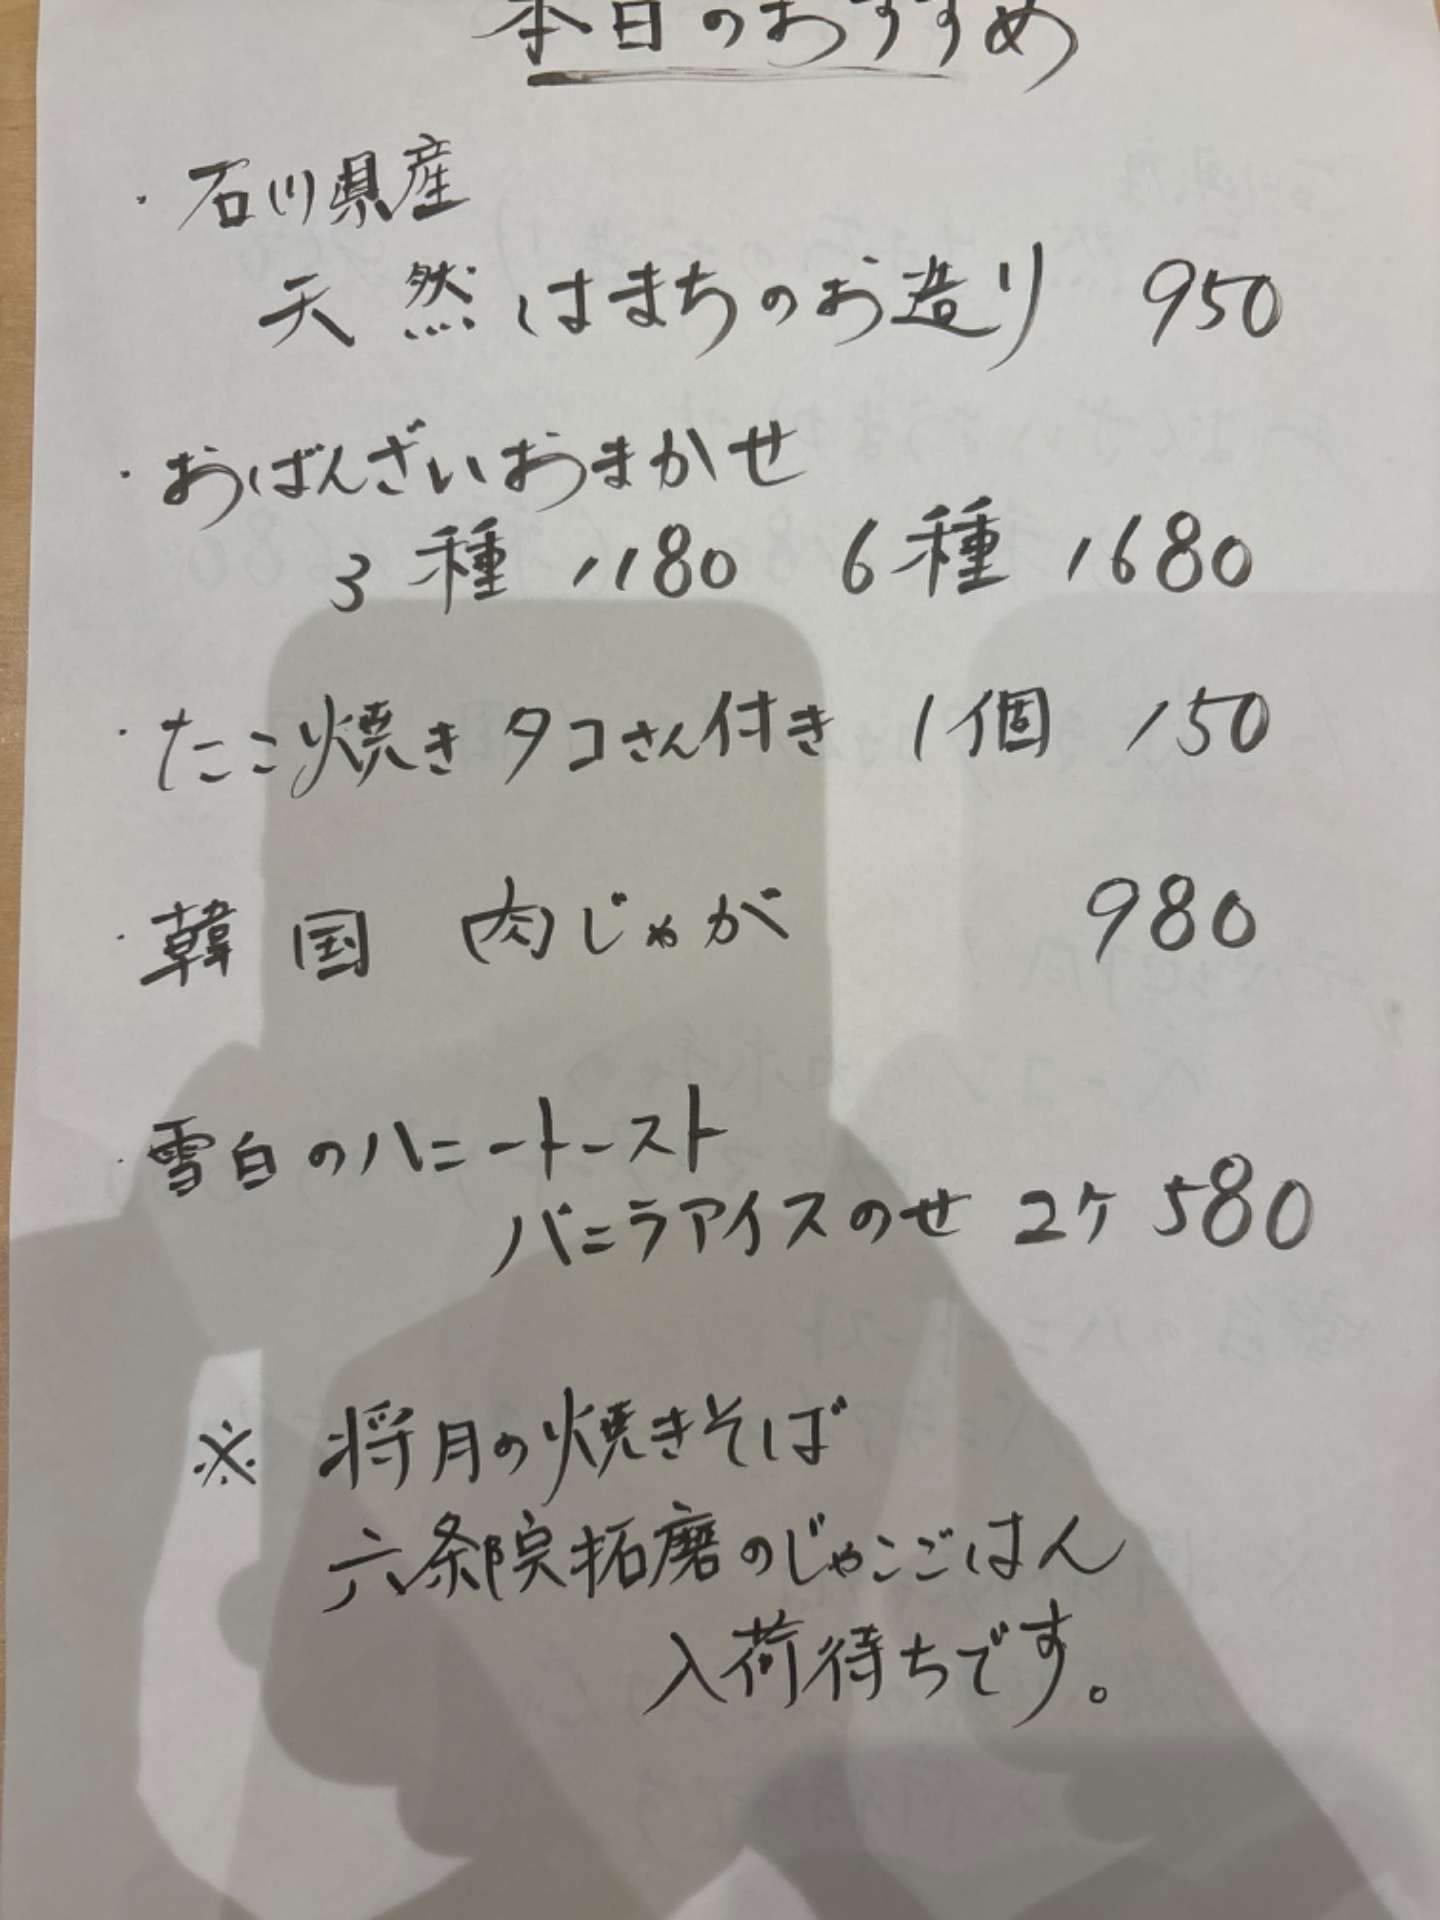 本日のおすすめ
・石川県産
天然はまちのお造り 950
・おばんざいおまかせ
3種 1180 6種 1680
・たこ焼きタコさん付き 1個 150
・韓国 肉じゃが 980
・雪白のハニートースト
バニラアイスのせ 2ケ 580
※ 将月の焼きそば
六条院拓磨のじゃこごはん
入荷待ちです。